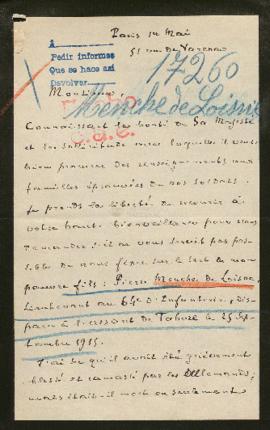 Paris 12 Mai
51 rue de Varenne
A
Pedir informes
Que se hace así
Devolver
17260
Menche de Loisne
Monsieur,
Connaissant la bonté de Sa Majesté
et la sollicitude avec laquelle il veut
bien procurer des renseignements aux
familles éprouvées de nos soldats,
je prends la liberté de recourir à
votre haute bienveillance pour vous
demander s'il ne vous serait pas pos-
sible de nous fixer sur le sort de mon
pauvre fils : Pierre Menche de Loisne,
Lieutenant au 64e d'Infanterie, dis-
paru à Tahure le 25 Sep-
tembre 1915.
J'ai su qu'il avait été grièvement
blessé et ramassé par les Allemands;
mais était-il mort ou seulement